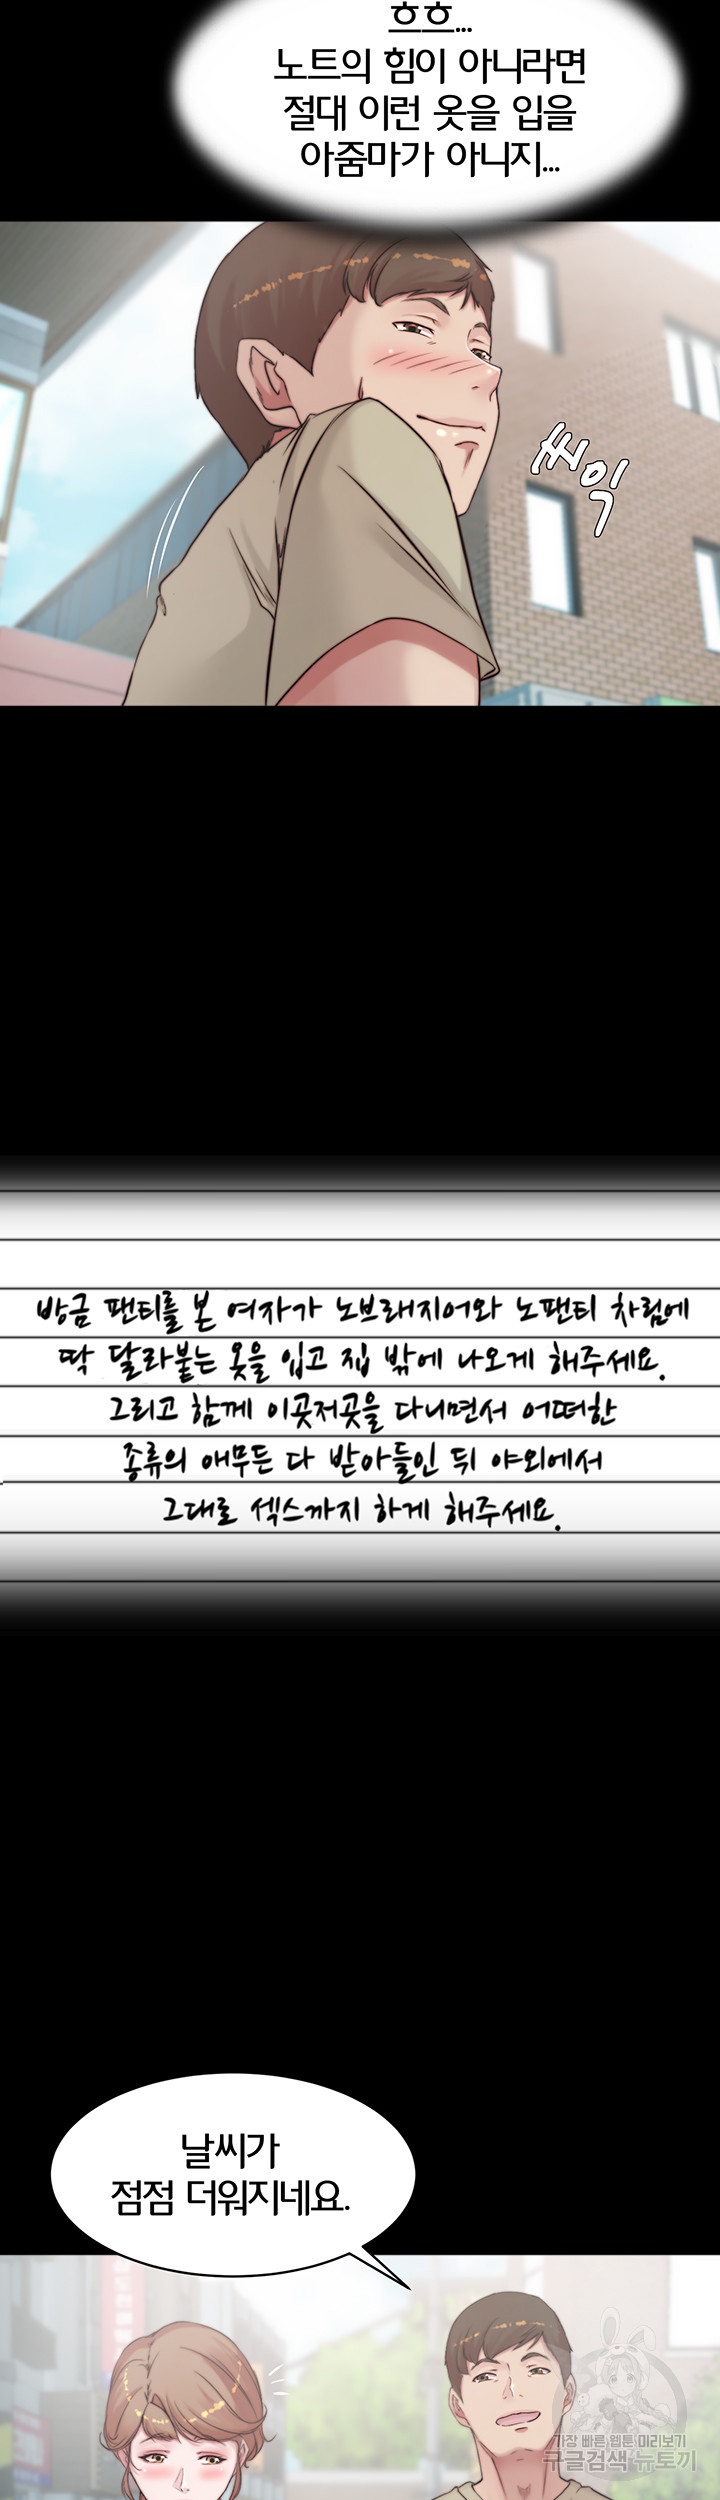 흐흐...
노트의 힘이 아니라면
절대 이런 옷을 입을
아줌마가 아니지...
씨익
방금 팬티를 본 여자가 노브래지어와 노팬티 차림에
딱 달라붙는 옷을 입고 집 밖에 나오게 해주세요.
그리고 함께 이곳저곳을 다니면서 어떠한
종류의 애무든 다 받아들인 뒤 야외에서
그대로 섹스까지 하게 해주세요.
날씨가
점점 더워지네요.
가장 빠른 웹툰 미리보기
구글검색 뉴토끼